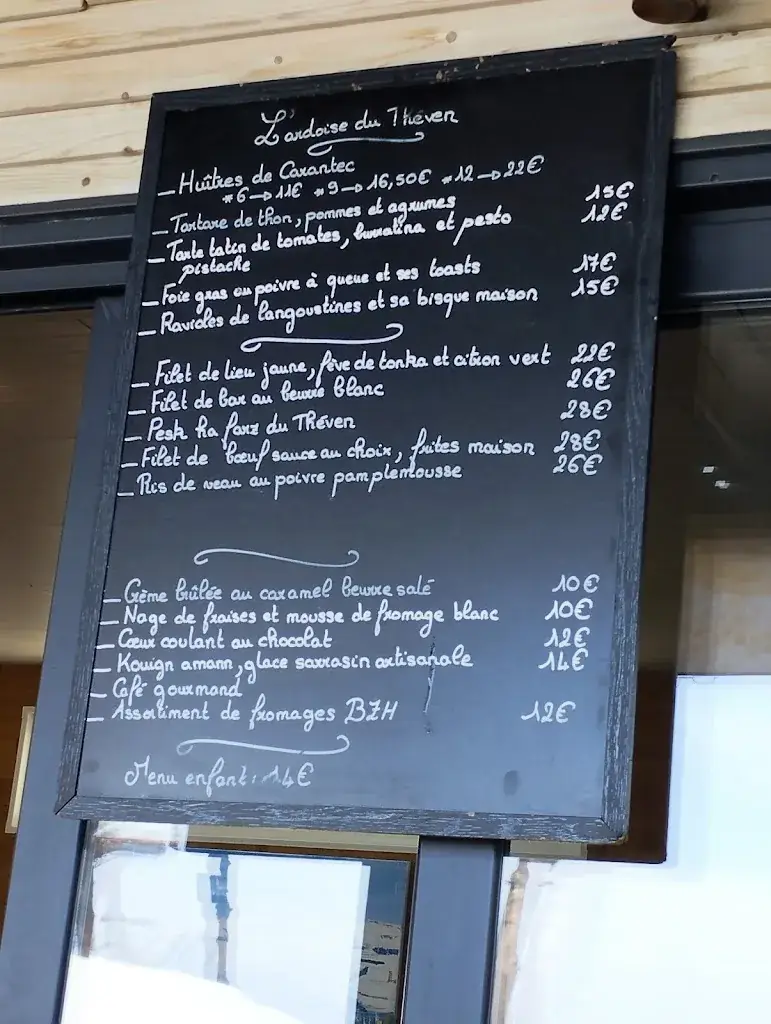 L'ardoise du Théven
_ Huîtres de Carantec
* 6 → 11€ * 9 → 16,50€ * 12 → 22€
_ Tartare de thon, pommes et agrumes 15€
_ Tarte tatin de tomates, burratina et pesto 12€
pistache
_ Foie gras au poivre à queue et ses toasts 17€
_ Ravioles de langoustines et sa bisque maison 15€
_ Filet de lieu jaune, fève de tonka et citron vert 22€
_ Filet de bar au beurre blanc 26€
_ Pesk ha farz du Théven 28€
_ Filet de bœuf sauce au choix, frites maison 28€
_ Ris de veau au poivre pamplemousse 26€
_ Crème brûlée au caramel beurre salé 10€
_ Nage de fraises et mousse de fromage blanc 10€
_ Cœur coulant au chocolat 12€
_ Kouign amann, glace sarrasin artisanale 14€
_ Café gourmand
_ Assortiment de fromages BZH 12€
Menu enfant : 14€